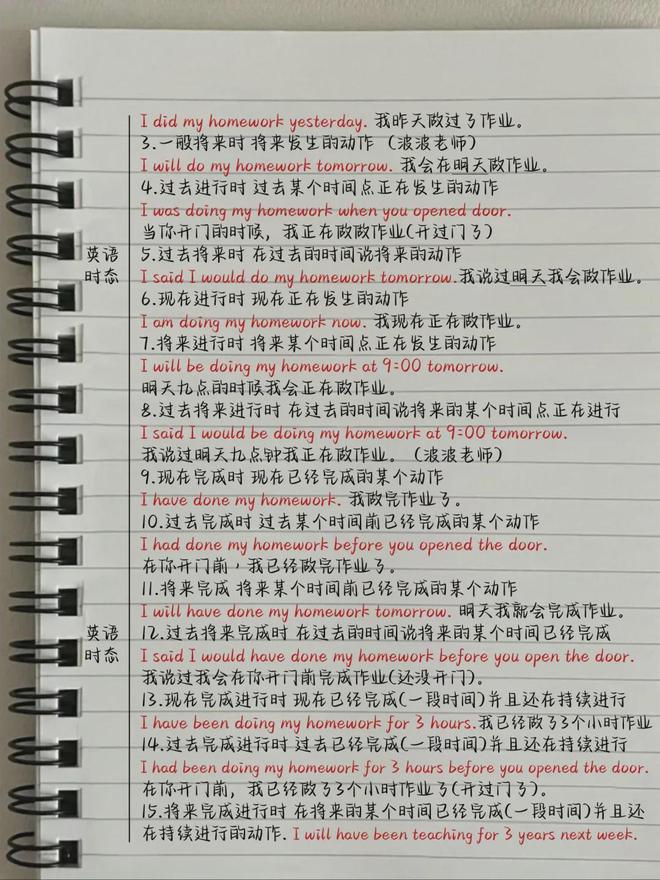 I did my homework yesterday. 我昨天做过了作业。
3.一般将来时 将来发生的动作 (波波老师)
I will do my homework tomorrow. 我会在明天做作业。
4.过去进行时 过去某个时间点正在发生的动作
I was doing my homework when you opened door.
当你开门的时候，我正在做做作业(开过门了)
英语
时态
5.过去将来时 在过去的时间说将来的动作
I said I would do my homework tomorrow.我说过明天我会做作业。
6.现在进行时 现在正在发生的动作
I am doing my homework now. 我现在正在做作业。
7.将来进行时 将来某个时间点正在发生的动作
I will be doing my homework at 9:00 tomorrow.
明天九点的时候我会正在做作业。
8.过去将来进行时 在过去的时间说将来的某个时间点正在进行
I said I would be doing my homework at 9:00 tomorrow.
我说过明天九点钟我正在做作业。(波波老师)
9.现在完成时 现在已经完成的某个动作
I have done my homework. 我做完作业了。
10.过去完成时 过去某个时间前已经完成的某个动作
I had done my homework before you opened the door.
在你开门前，我已经做完作业了。
11.将来完成 将来某个时间前已经完成的某个动作
I will have done my homework tomorrow. 明天我就会完成作业。
英语
时态
12.过去将来完成时 在过去的时间说将来的某个时间已经完成
I said I would have done my homework before you open the door.
我说过我会在你开门前完成作业(还没开门)。
13.现在完成进行时 现在已经完成(一段时间)并且还在持续进行
I have been doing my homework for 3 hours.我已经做了3个小时作业
14.过去完成进行时 过去已经完成(一段时间)并且还在持续进行
I had been doing my homework for 3 hours before you opened the door.
在你开门前，我已经做了3个小时作业了(开过门了)。
15.将来完成进行时 在将来的某个时间已经完成(一段时间)并且还
在持续进行的动作. I will have been teaching for 3 years next week.